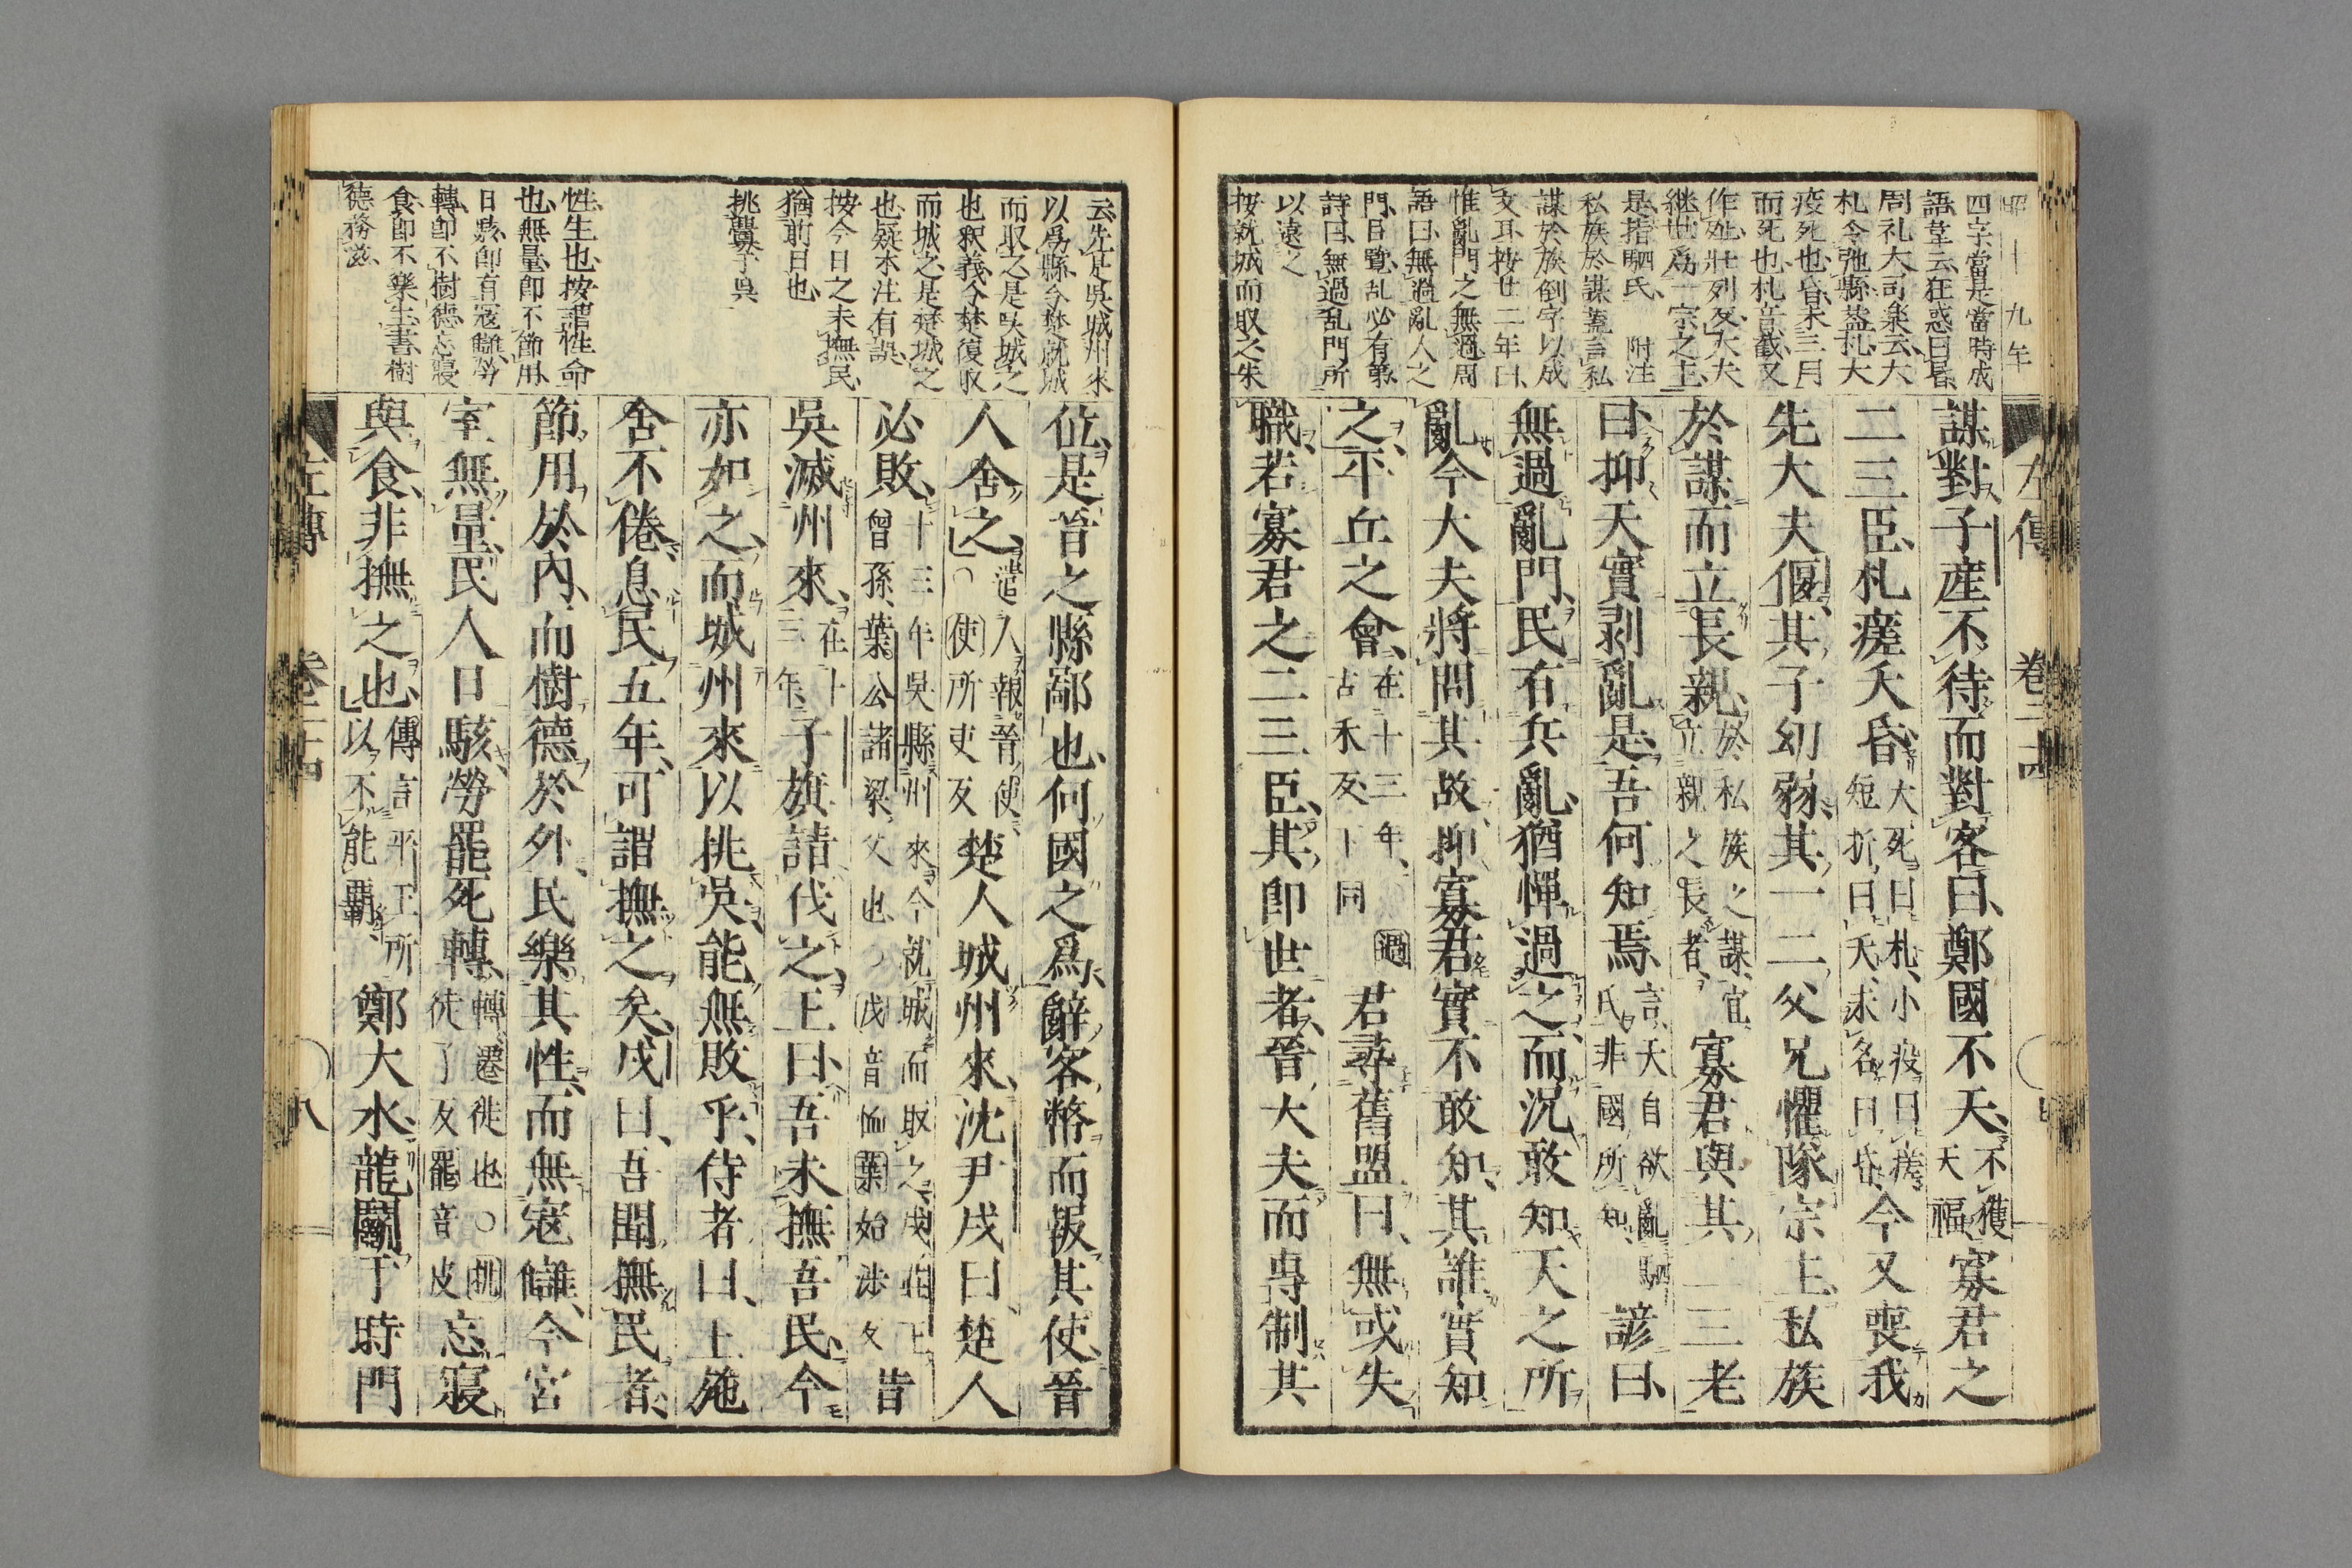 四字當是當時成
語韋云狂惑曰昬
周礼大司樂云大
札令弛縣荎札大
疫死也昬末三月
而死也札音截又
作死壯列反大夫
継世爲一宗之主
是指駟氏 附注
私族於謀蓋言私
謀於族倒字以成
文耳按廿二年曰
惟亂門之無過周
語曰無過亂人之
門曰覽乱必有第
詩曰無過乱門所
以遠之
按就城而取之朱
左傳 卷二十四
謀對子産不待而對客曰鄭國不天不獲天福寡君之
二三臣札瘥夭昏大死曰札小疫曰瘥短折曰夭未名曰昏今又喪我
先大夫偃其子幼弱其一二父兄懼隊宗主私族
於謀而立長親於私族之謀宜立親之長者寡君與其二三老
曰抑天實剥亂是吾何知焉言天自欲亂駟氏非國所知諺曰
無過亂門民有兵亂猶憚過之而況敢知天之所
亂今大夫將問其故抑寡君實不敢知其誰實知
之平丘之會在十三年過古禾反下同君尋舊盟曰無或失
職若寡君之二三臣其即世者晉大夫而專制其
云先是吳城州來
以爲縣今楚就城
而取之是吳城之
也釈義今楚復取
而城之是楚城之
也疑本注有誤
按今日之未撫民
猶前日也
挑釁于吳
性生也按謂性命
也無量即不節用
日駭即有寇讎勞
轉即不樹德忘寢
食即不樂生書樹
德務滋
位是晉之縣鄙也何國之爲辭客幣而報其使晉
人舍之遣人報晉使○使所吏反楚人城州來沈尹戌曰楚人
必敗十三年吳縣州來今就城而取之戌莊王曾孫葉公諸梁父也○戌音恤葉始涉反昔
吳滅州來在十三年子旗請伐之王曰吾未撫吾民今
亦如之而城州來以挑吳能無敗乎侍者曰王施
舍不倦息民五年可謂撫之矣戌曰吾聞撫民者
節用於內而樹德於外民樂其性而無寇讎今宮
室無量民人日駭勞罷死轉轉遷徙也○挑徒了反罷音皮忘寢
與食非撫之也傳言平王所以不能霸鄭大水龍鬬于時門
左傳 卷二十四 八